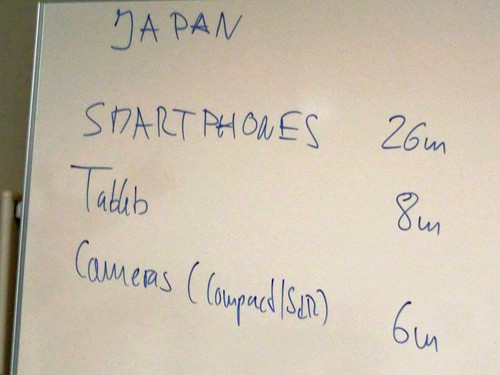 JAPAN
SMARTPHONES 26m
Tablets 8m
Cameras (Compact/SLR) 6m